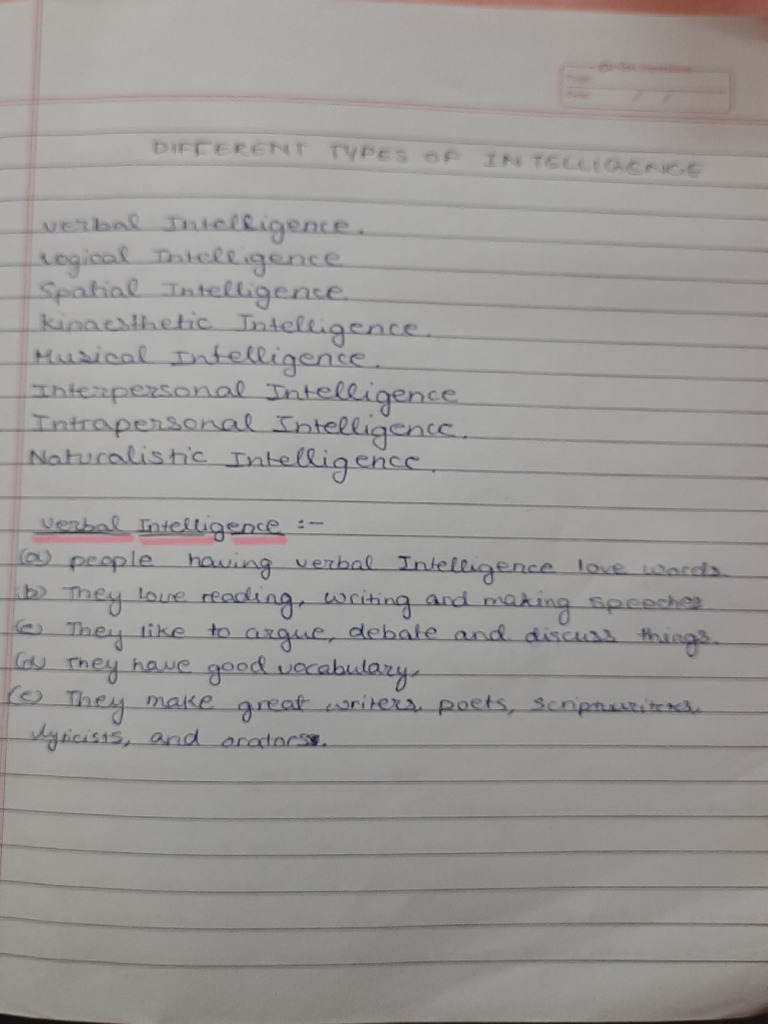 Page:
Date: / /
DIFFERENT TYPES OF INTELLIGENCE
verbal Intelligence.
Logical Intelligence
Spatial Intelligence.
Kinaesthetic Intelligence.
Musical Intelligence.
Interpersonal Intelligence
Intrapersonal Intelligence.
Naturalistic Intelligence.
verbal Intelligence :-
(a) people having verbal Intelligence love words.
(b) They love reading, writing and making speeches
(c) They like to argue, debate and discuss things.
(d) They have good vocabulary.
(e) They make great writers, poets, scriptwriters,
lyricists, and orators.